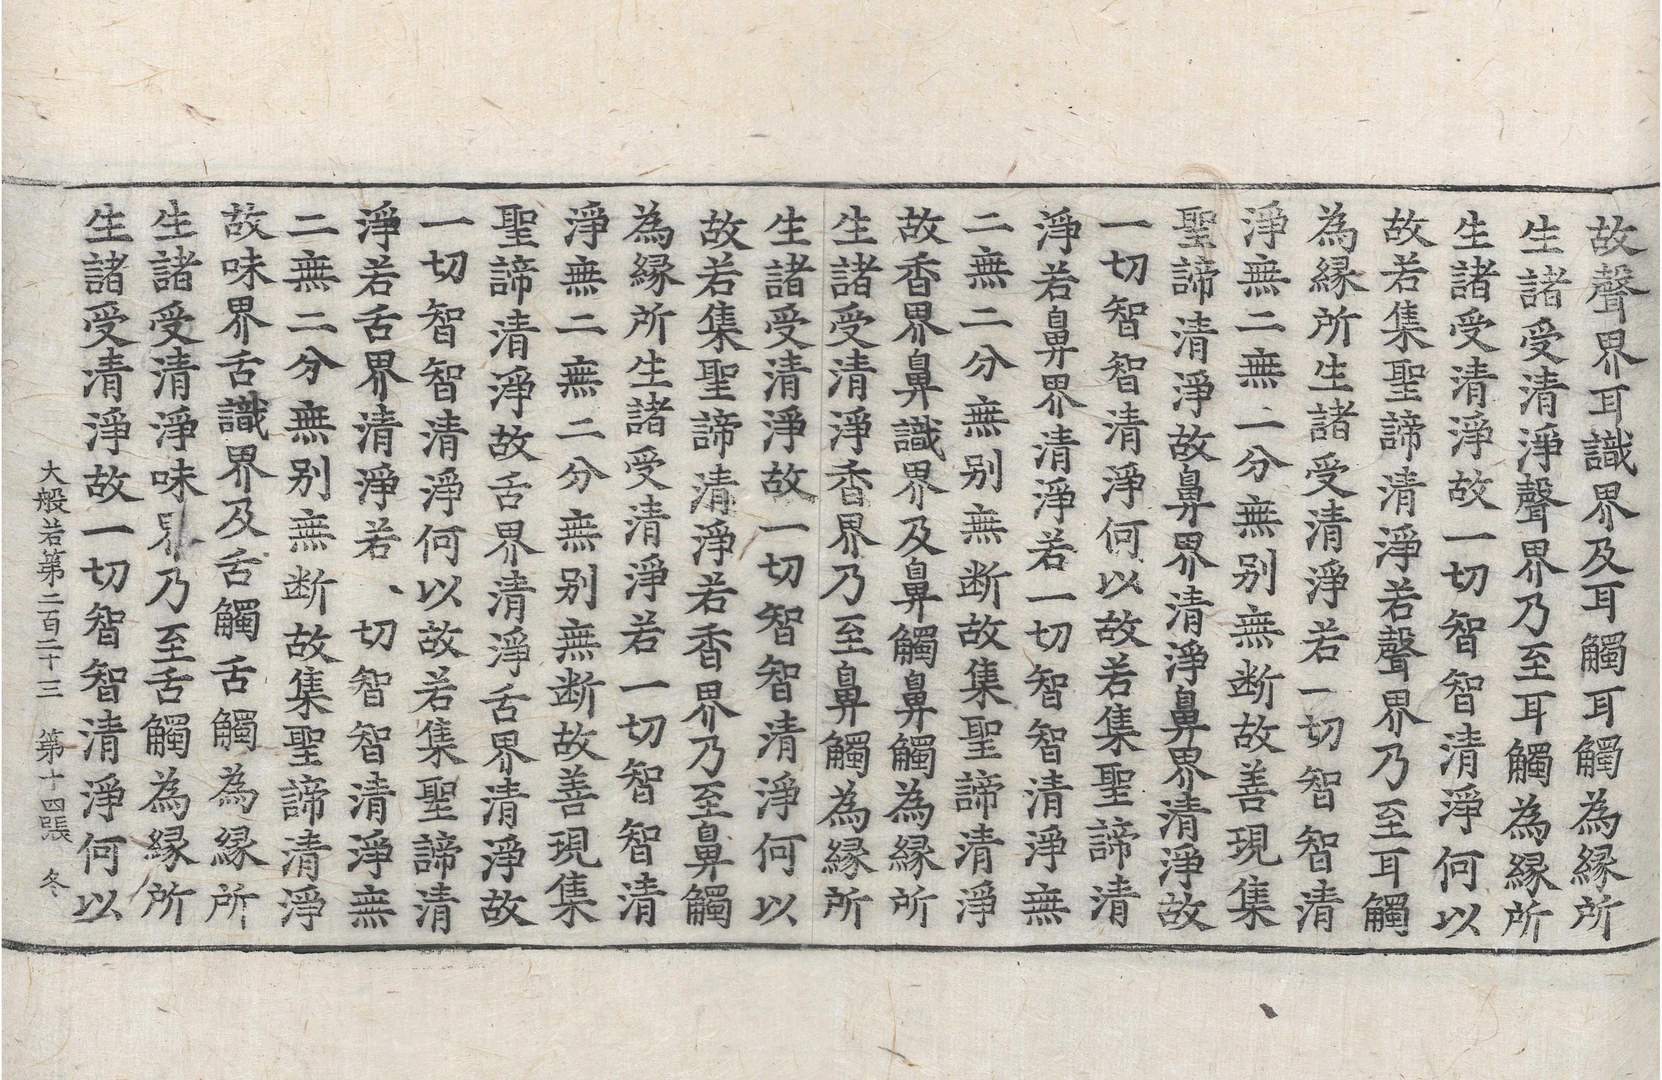 故聲界耳識界及耳觸耳觸為縁所
生諸受清淨聲界乃至耳觸為縁所
生諸受清淨故一切智智清淨何以
故若集聖諦清淨若聲界乃至耳觸
為縁所生諸受清淨若一切智智清
淨無二無二分無別無断故善現集
聖諦清淨故鼻界清淨鼻界清淨故
一切智智清淨何以故若集聖諦清
淨若鼻界清淨若一切智智清淨無
二無二分無別無断故集聖諦清淨
故香界鼻識界及鼻觸鼻觸為縁所
生諸受清淨香界乃至鼻觸為縁所
生諸受清淨故一切智智清淨何以
故若集聖諦清淨若香界乃至鼻觸
為縁所生諸受清淨若一切智智清
淨無二無二分無別無断故善現集
聖諦清淨故舌界清淨舌界清淨故
一切智智清淨何以故若集聖諦清
淨若舌界清淨若、切智智清淨無
二無二分無別無断故集聖諦清淨
故味界舌識界及舌觸舌觸為縁所
生諸受清淨味界乃至舌觸為縁所
生諸受清淨故一切智智清淨何以
大般若第二百二十三　第十四張　冬